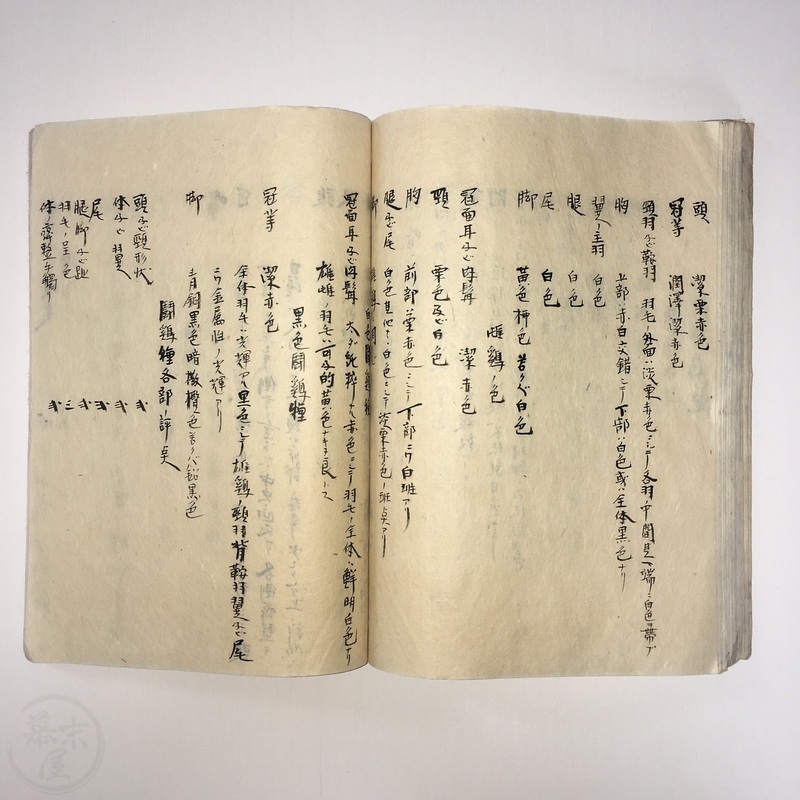 頭 潔栗赤色
冠等 潤澤潔赤色
頸羽及鞍羽 羽毛ノ外面ハ淡栗赤色ニシテ各羽中間且下端ニ白色ヲ帯ブ
胸 上部ハ赤白交錯ニシテ下部ハ白色或ハ全体黒色ナリ
翼ノ主羽 白色
腿 白色
尾 白色
脚 黄色柿色若クハ白色
雌鷄ノ色
冠面耳及肉髯 潔赤色
頸 栗色及白色
胸 前部栗赤色ニシテ下部ニ白斑アリ
腿及尾 白色其他ハ白色ニシテ淡栗赤色ノ斑点アリ
冠面耳及肉髯 太ダ純粋ナル赤色ニシテ羽毛ノ全体ハ鮮明白色ナリ
雄雌ノ羽毛ハ可及的黄色ナキヲ良トス
黒色闘鷄種
冠等 潔赤色
全体羽毛ハ光輝アル黒色ニシテ雄鷄ノ頸羽背鞍羽翼及尾
ニハ金属性ノ光輝アリ
脚 青銅黒色暗橄欖色若クハ鉛黒色
闘鷄種各部ノ評点
頭及頸形状
体及翼
尾
腿脚及趾
羽毛ノ呈色
体ノ齊整